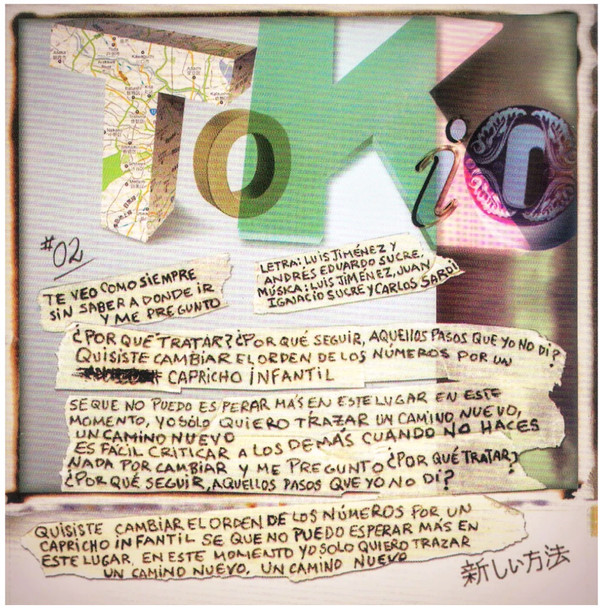 TOKiO
#02
LETRA: LUIS JIMÉNEZ Y
ANDRÉS EDUARDO SUCRE.
MÚSICA: LUIS JIMÉNEZ, JUAN
IGNACIO SUCRE Y CARLOS SARDI
TE VEO COMO SIEMPRE
SIN SABER A DONDE IR
Y ME PREGUNTO
¿POR QUÉ TRATAR? ¿POR QUÉ SEGUIR, AQUELLOS PASOS QUE YO NO DI?
QUISISTE CAMBIAR EL ORDEN DE LOS NÚMEROS POR UN
CAPRICHO INFANTIL
SE QUE NO PUEDO ESPERAR MÁS EN ESTE LUGAR EN ESTE
MOMENTO, YO SÓLO QUIERO TRAZAR UN CAMINO NUEVO,
UN CAMINO NUEVO
ES FÁCIL CRITICAR A LOS DEMÁS CUÁNDO NO HACES
NADA POR CAMBIAR Y ME PREGUNTO ¿POR QUÉ TRATAR?
¿POR QUÉ SEGUIR, AQUELLOS PASOS QUE YO NO DI?
QUISISTE CAMBIAR EL ORDEN DE LOS NÚMEROS POR UN
CAPRICHO INFANTIL SE QUE NO PUEDO ESPERAR MÁS EN
ESTE LUGAR, EN ESTE MOMENTO YO SOLO QUIERO TRAZAR
UN CAMINO NUEVO, UN CAMINO NUEVO
新しい方法